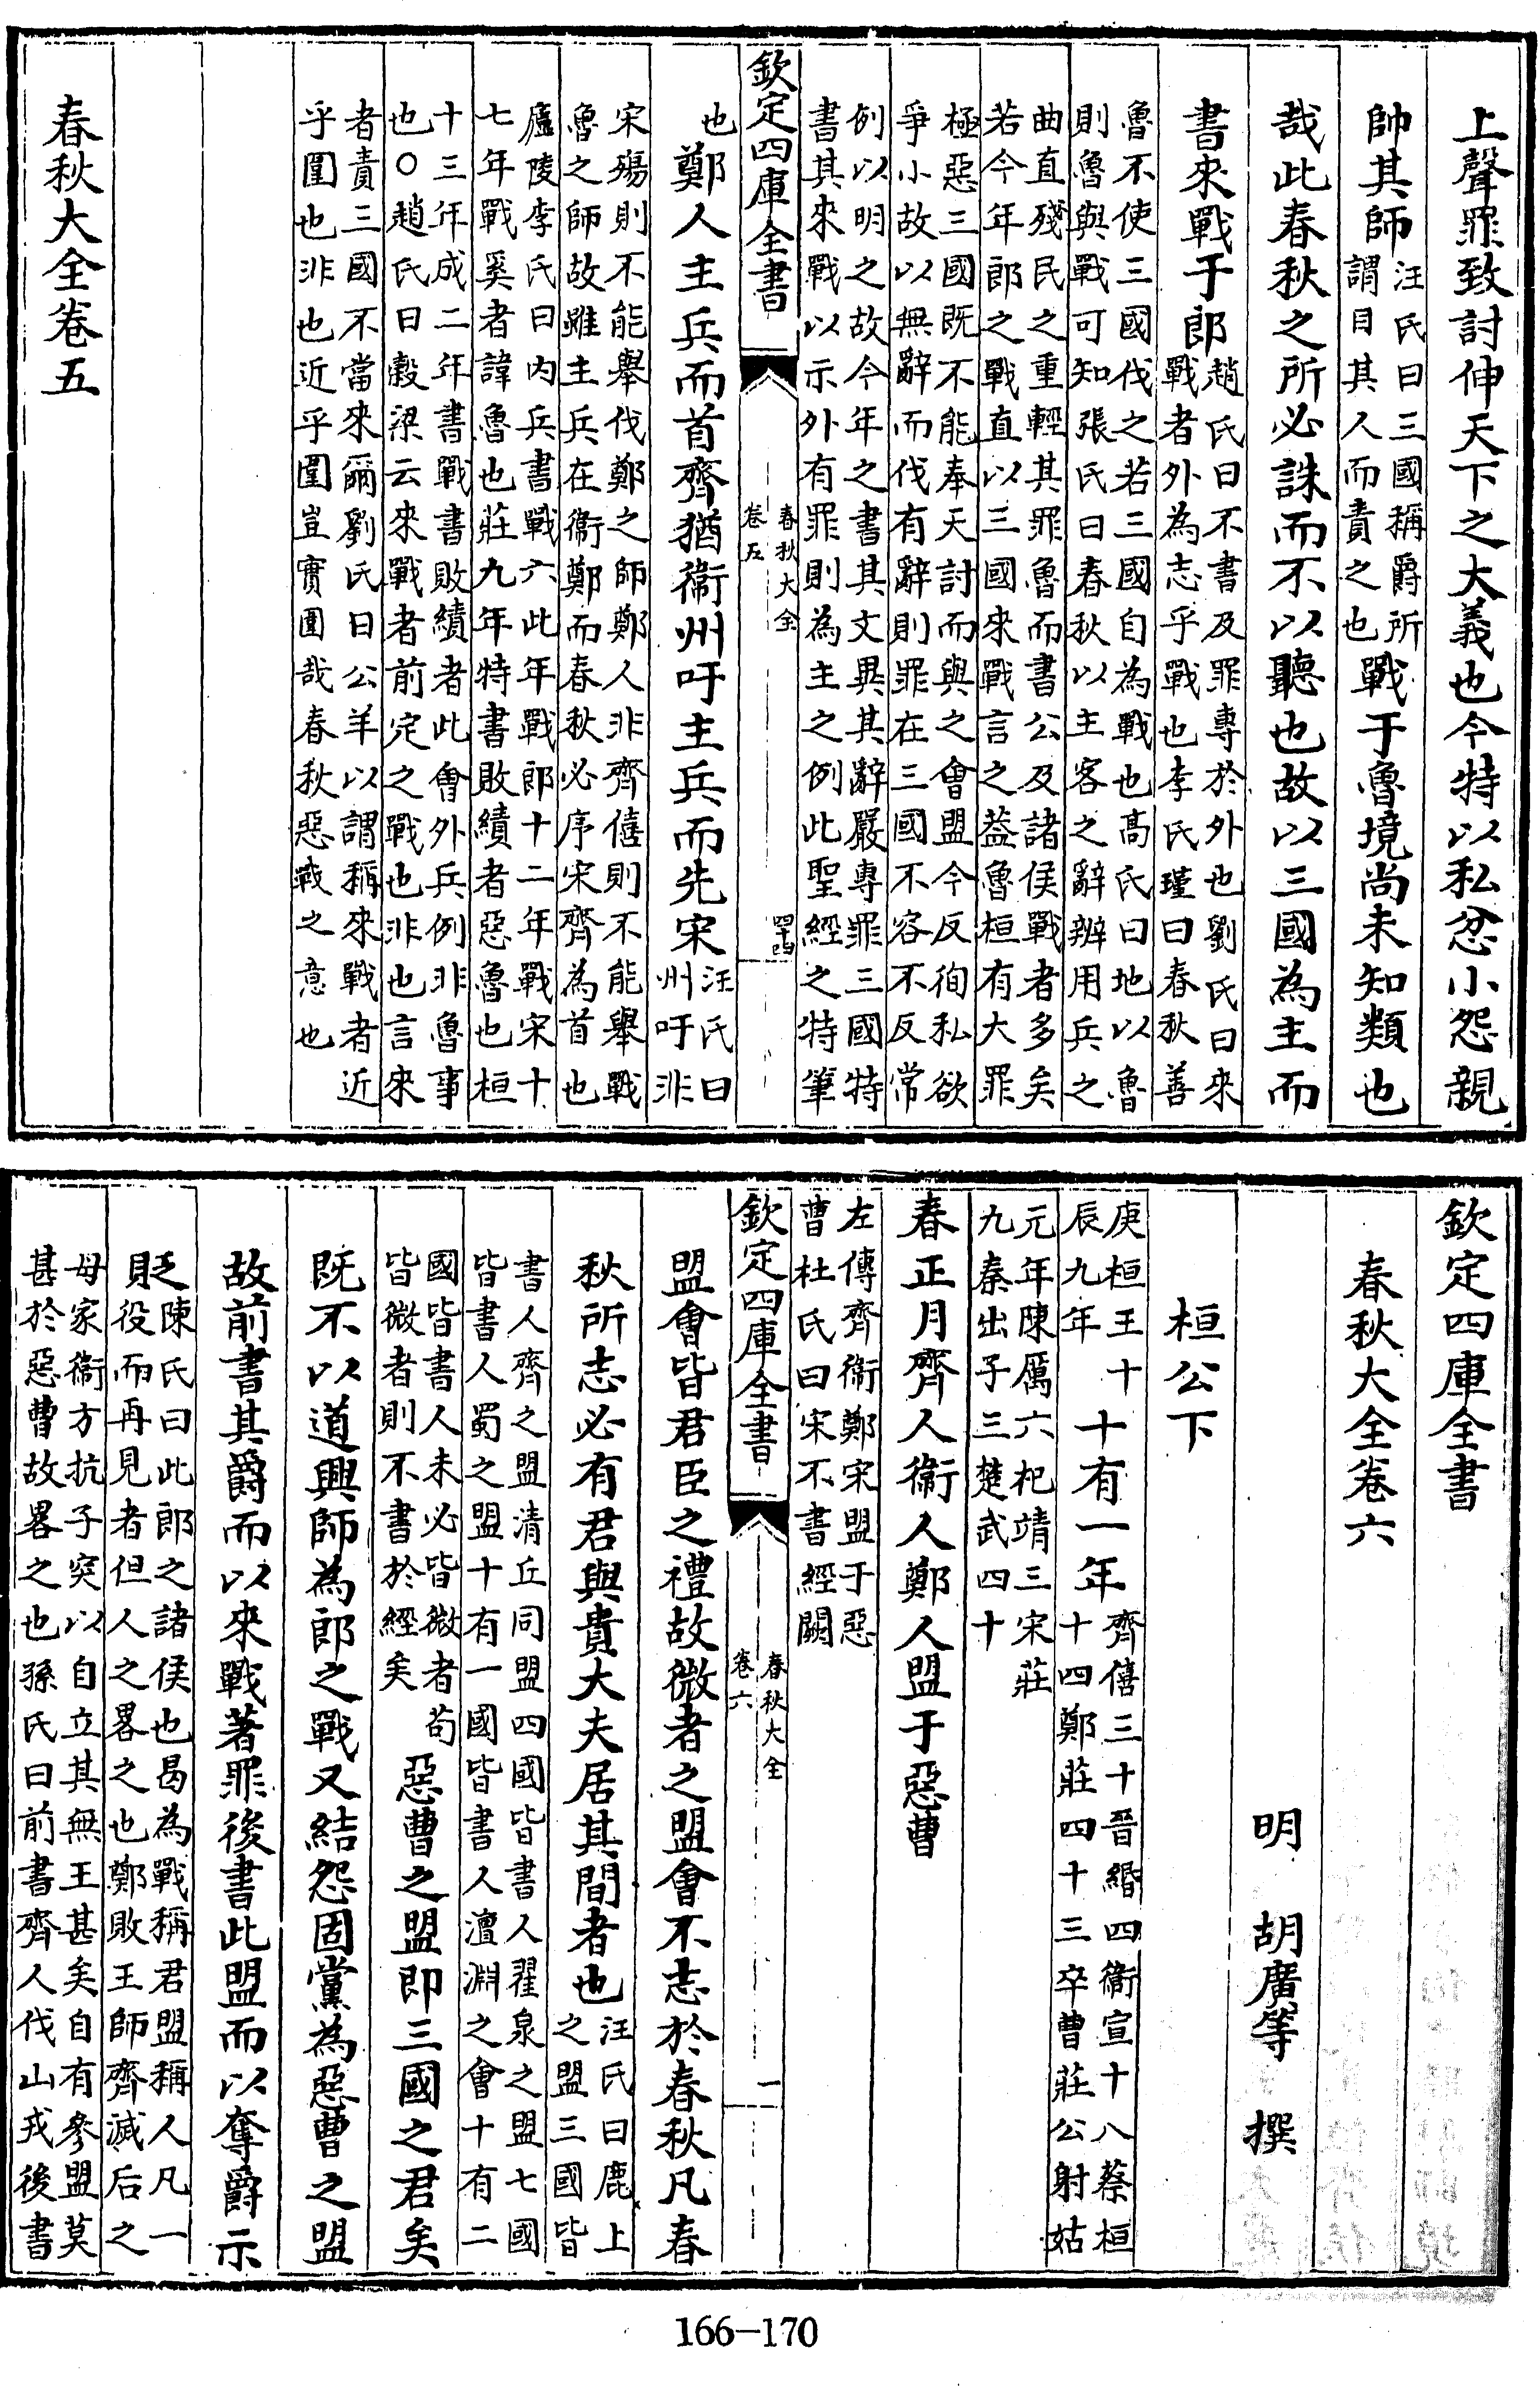 上聲罪致討伸天下之大義也今特以私忿小怨親
帥其師汪氏曰三國稱爵所謂目其人而責之也戰于魯境尚未知類也
哉此春秋之所必誅而不以聽也故以三國為主而
書來戰于郎趙氏曰不書及罪專於外也劉氏曰來
戰者外為志乎戰也李氏瑾曰春秋善
魯不使三國伐之若三國自為戰也高氏曰地以魯
則魯與戰可知張氏曰春秋以主客之辭辨用兵之
曲直殘民之重輕其罪魯而書公及諸侯戰者多矣
若今年郎之戰直以三國來戰言之葢魯桓有大罪
極惡三國既不能奉天討而與之會盟今反徇私欲
爭小故以無辭而伐有辭則罪在三國不容不反常
例以明之故今年之書其文異其辭嚴專罪三國特
書其來戰以示外有罪則為主之例此聖經之特筆
欽定四庫全書
春秋大全
卷五
四十四
也鄭人主兵而首齊猶衞州吁主兵而先宋汪氏曰
州吁非
宋殤則不能舉伐鄭之師鄭人非齊僖則不能舉戰
魯之師故雖主兵在衞鄭而春秋必序宋齊為首也
廬陵李氏曰内兵書戰六此年戰郎十二年戰宋十
七年戰奚者諱魯也莊九年特書敗績者惡魯也桓
十三年成二年書戰書敗績者此會外兵例非魯事
也○趙氏曰榖梁云來戰者前定之戰也非也言來
者責三國不當來爾劉氏曰公羊以謂稱來戰者近
乎圍也非也近乎圍豈實圍哉春秋惡戰之意也
春秋大全卷五
欽定四庫全書
春秋大全卷六
明 胡廣等 撰
桓公下
庚辰桓王十九年十有一年齊僖三十晉緡四衞宣十八蔡桓
十四鄭莊四十三卒曹莊公射姑
元年陳厲六杞靖三宋莊
九秦出子三楚武四十
春正月齊人衞人鄭人盟于惡曹
左傳齊衞鄭宋盟于惡
曹杜氏曰宋不書經闕
欽定四庫全書
春秋大全
卷六
一
盟會皆君臣之禮故微者之盟會不志於春秋凡春
秋所志必有君與貴大夫居其間者也汪氏曰鹿上
之盟三國皆
書人齊之盟清丘同盟四國皆書人翟泉之盟七國
皆書人蜀之盟十有一國皆書人澶淵之會十有二
國皆書人未必皆微者苟
皆微者則不書於經矣惡曹之盟即三國之君矣
既不以道興師為郎之戰又結怨固黨為惡曹之盟
故前書其爵而以來戰著罪後書此盟而以奪爵示
貶陳氏曰此郎之諸侯也曷為戰稱君盟稱人凡一
役而再見者但人之畧之也鄭敗王師齊滅后之
母家衞方抗子突以自立其無王甚矣自有參盟莫
甚於惡曹故畧之也孫氏曰前書齊人伐山戎後書
166-170